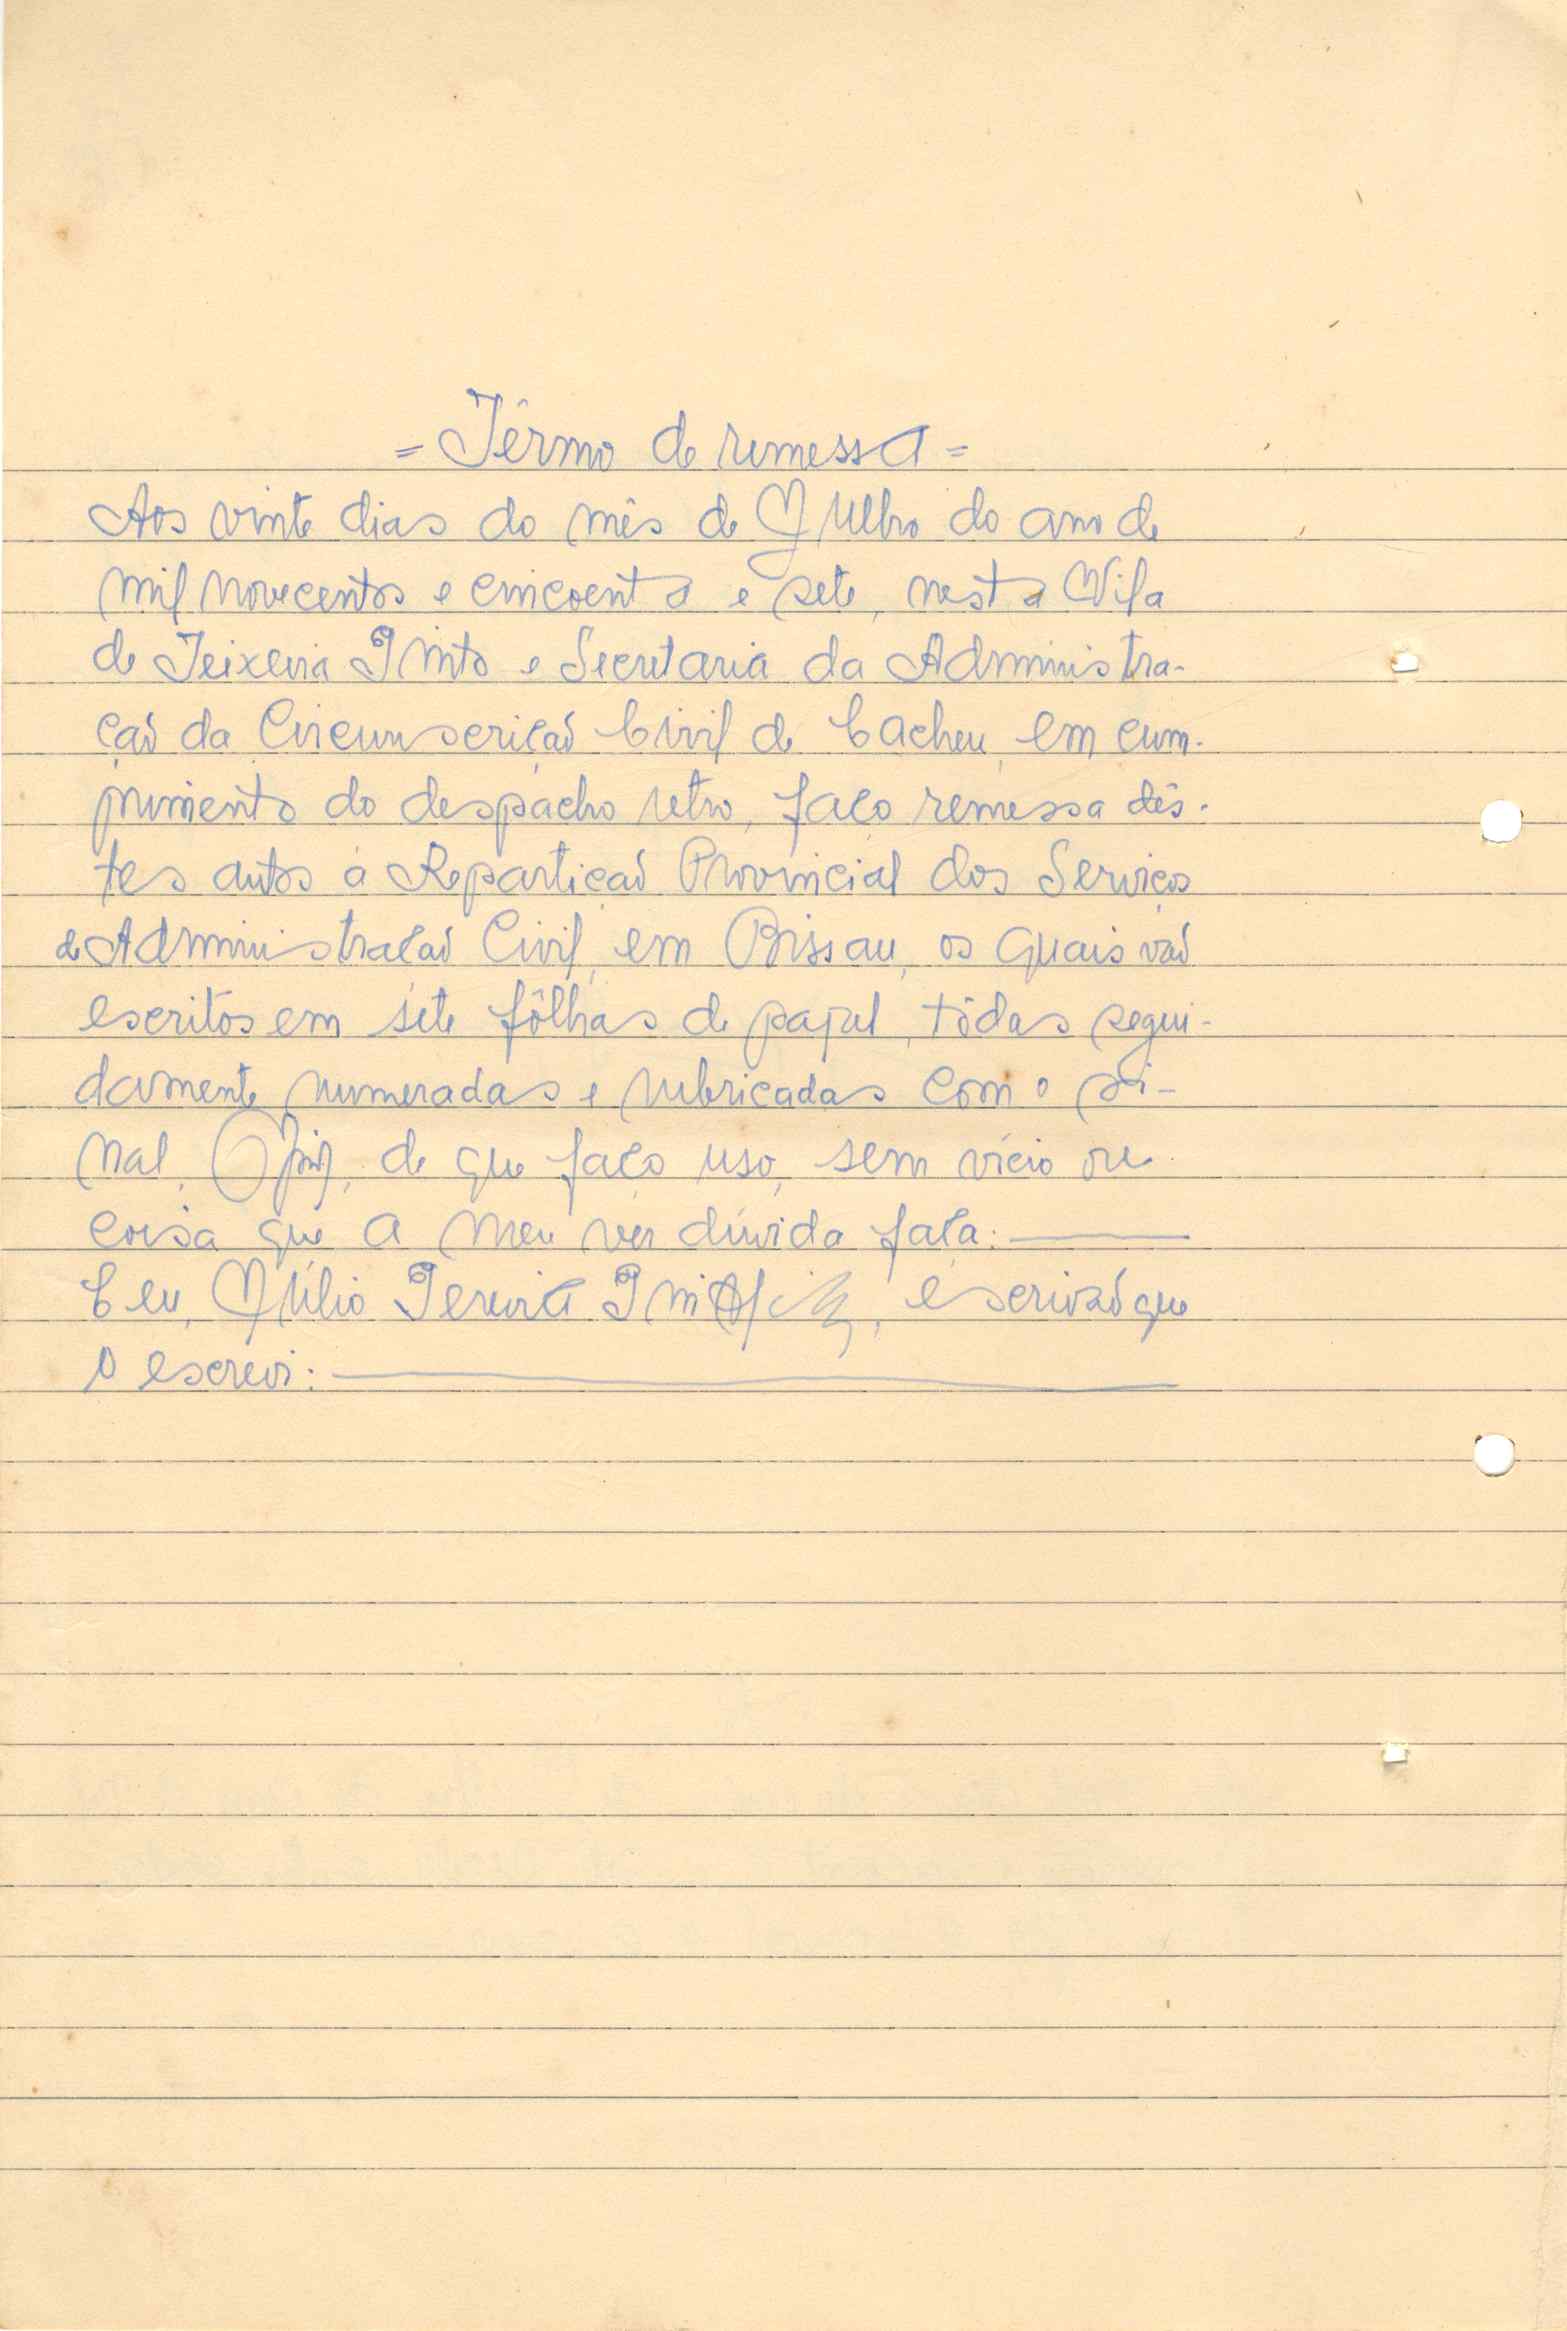 = Têrmo de remessa =
Aos vinte dias do mês de Julho do ano de
mil novecentos e cincoenta e sete, nesta Vila
de Teixeira Pinto e Secretaria da Administra-
ção da Circunscrição Civil de Cacheu, em cum-
primento do despacho retro, faço remessa dês-
tes autos à Repartição Provincial dos Serviços
de Administração Civil, em Bissau, os quais vão
escritos em sete fôlhas de papel, tôdas segui-
damente numeradas e rubricadas com o si-
nal, de que faço uso, sem vício ou
coisa que a meu ver dúvida faça:
E eu, Júlio Pereira, escrivão que
o escrevi: